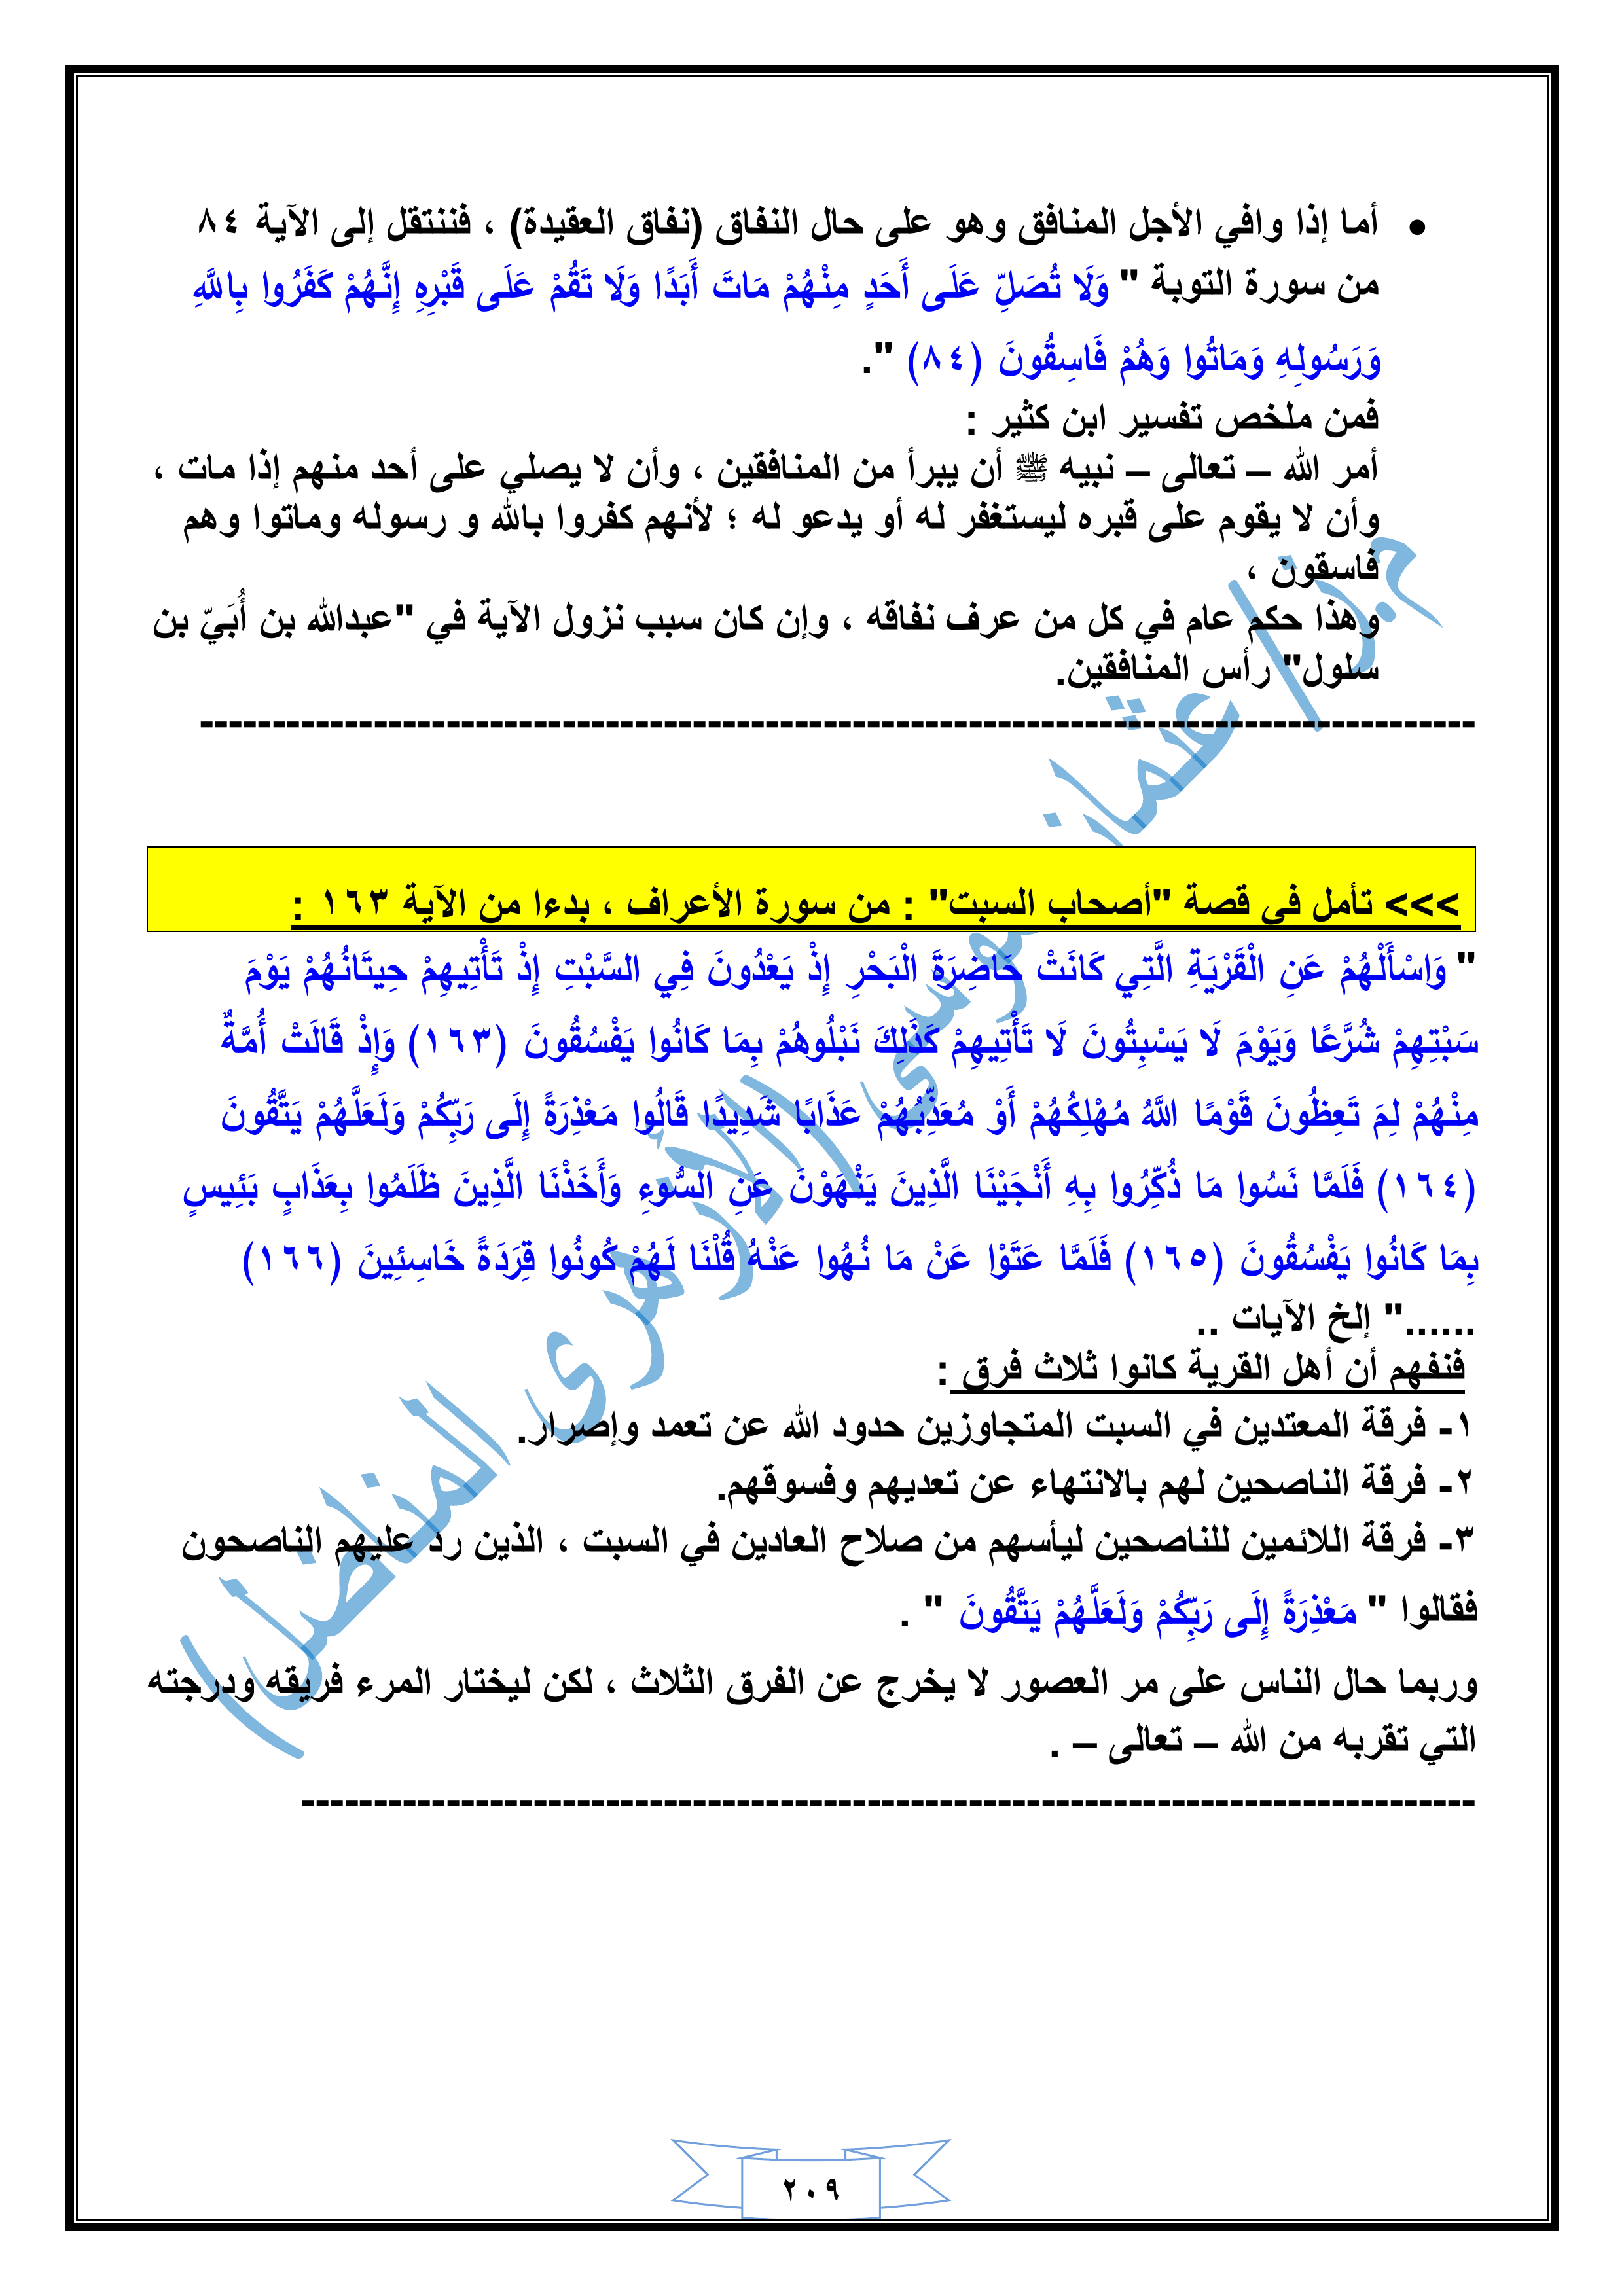 • أما إذا وافي الأجل المنافق وهو على حال النفاق (نفاق العقيدة) ، فننتقل إلى الآية ٨٤
من سورة التوبة " وَلَا تُصَلِّ عَلَى أَحَدٍ مِنْهُمْ مَاتَ أَبَدًا وَلَا تَقُمْ عَلَى قَبْرِهِ إِنَّهُمْ كَفَرُوا بِاللَّهِ
وَرَسُولِهِ وَمَاتُوا وَهُمْ فَاسِقُونَ (٨٤) ".
فمن ملخص تفسير ابن كثير :
أمر الله – تعالى – نبيه ﷺ أن يبرأ من المنافقين ، وأن لا يصلي على أحد منهم إذا مات ،
وأن لا يقوم على قبره ليستغفر له أو يدعو له ؛ لأنهم كفروا بالله و رسوله وماتوا وهم
فاسقون ،
وهذا حكم عام في كل من عرف نفاقه ، وإن كان سبب نزول الآية في "عبدالله بن أُبَيّ بن
سلول" رأس المنافقين.
----------------------------------------------------------------------------------------
>>> تأمل فى قصة "أصحاب السبت" : من سورة الأعراف ، بدءا من الآية ١٦٣ :
" وَاسْأَلْهُمْ عَنِ الْقَرْيَةِ الَّتِي كَانَتْ حَاضِرَةَ الْبَحْرِ إِذْ يَعْدُونَ فِي السَّبْتِ إِذْ تَأْتِيهِمْ حِيتَانُهُمْ يَوْمَ
سَبْتِهِمْ شُرَّعًا وَيَوْمَ لَا يَسْبِتُونَ لَا تَأْتِيهِمْ كَذَلِكَ نَبْلُوهُمْ بِمَا كَانُوا يَفْسُقُونَ (١٦٣) وَإِذْ قَالَتْ أُمَّةٌ
مِنْهُمْ لِمَ تَعِظُونَ قَوْمًا اللَّهُ مُهْلِكُهُمْ أَوْ مُعَذِّبُهُمْ عَذَابًا شَدِيدًا قَالُوا مَعْذِرَةً إِلَى رَبِّكُمْ وَلَعَلَّهُمْ يَتَّقُونَ
(١٦٤) فَلَمَّا نَسُوا مَا ذُكِّرُوا بِهِ أَنْجَيْنَا الَّذِينَ يَنْهَوْنَ عَنِ السُّوءِ وَأَخَذْنَا الَّذِينَ ظَلَمُوا بِعَذَابٍ بَئِيسٍ
بِمَا كَانُوا يَفْسُقُونَ (١٦٥) فَلَمَّا عَتَوْا عَنْ مَا نُهُوا عَنْهُ قُلْنَا لَهُمْ كُونُوا قِرَدَةً خَاسِئِينَ (١٦٦)
......" إلخ الآيات ..
فنفهم أن أهل القرية كانوا ثلاث فرق :
١- فرقة المعتدين في السبت المتجاوزين حدود الله عن تعمد وإصرار.
٢- فرقة الناصحين لهم بالانتهاء عن تعديهم وفسوقهم.
٣- فرقة اللائمين للناصحين ليأسهم من صلاح العادين في السبت ، الذين رد عليهم الناصحون
فقالوا " مَعْذِرَةً إِلَى رَبِّكُمْ وَلَعَلَّهُمْ يَتَّقُونَ " .
وربما حال الناس على مر العصور لا يخرج عن الفرق الثلاث ، لكن ليختار المرء فريقه ودرجته
التي تقربه من الله – تعالى – .
---------------------------------------------------------------------------------
٢٠٩